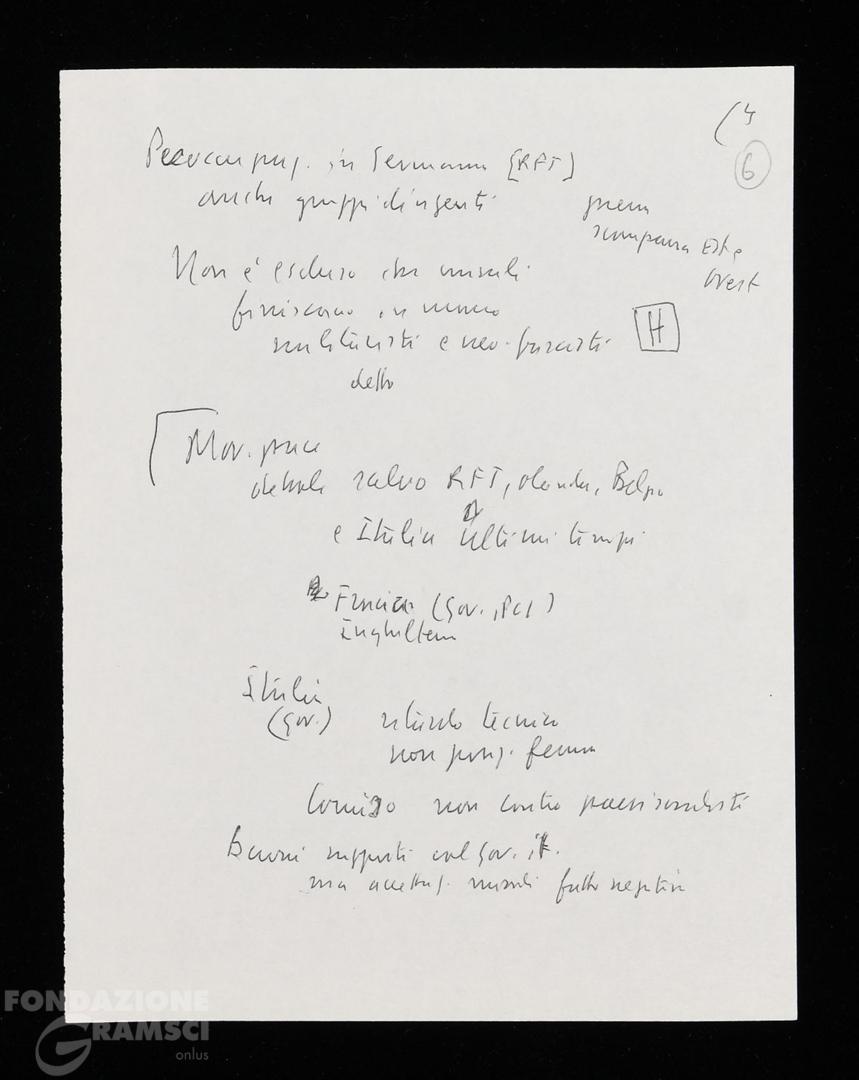 (4
6
Preoccupaz. in Germania [RFT]
anche gruppi dirigenti
guerra
scompaia Est e
Ovest
Non è escluso che missili
finiscano in mano
militaristi e neo-fascisti
detto
H
Mov. pace
debole salvo RFT, Olanda, Belgio
e Italia ultimi tempi
Francia (Gov., PCF)
Inghilterra
Italia
(Gov.) ritardo tecnico
non posiz. ferma
Comiso non contro paesi socialisti
Buoni rapporti col Gov. it.
ma accettaz. missili fatto negativo
FONDAZIONE
GRAMSCI
onlus